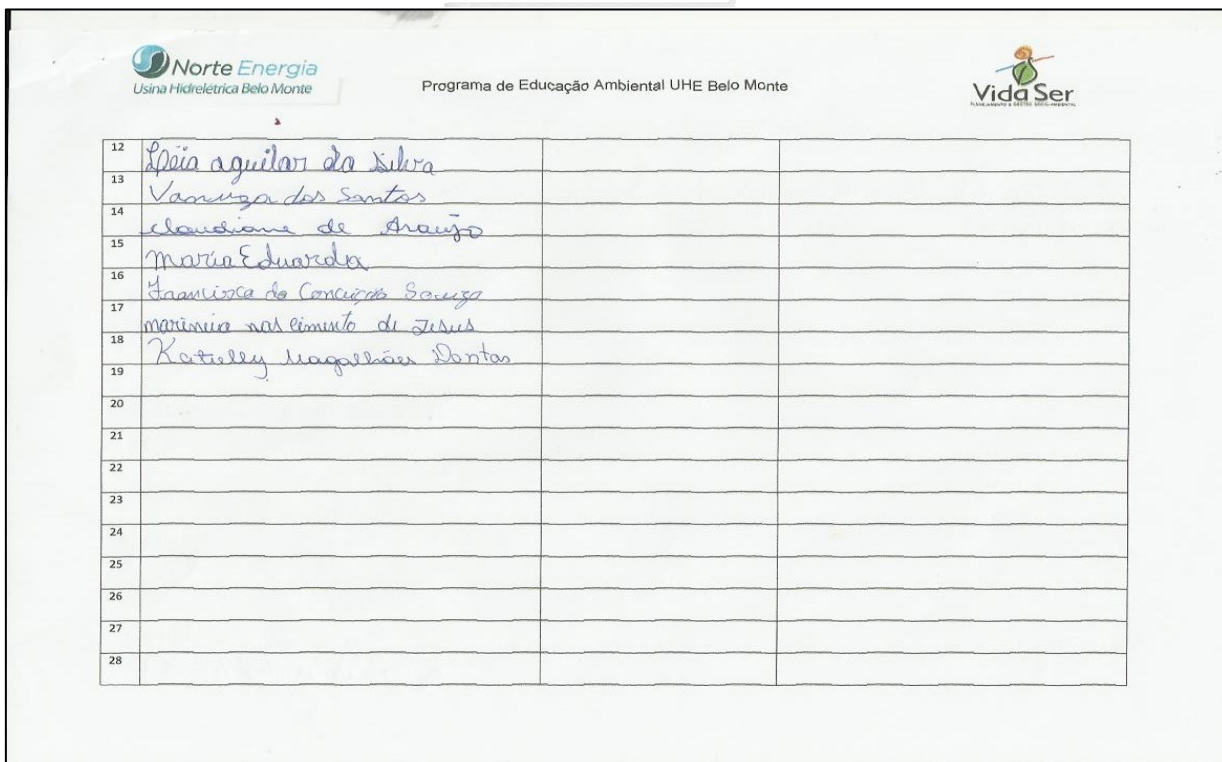 Norte Energia
Usina Hidrelétrica Belo Monte
Programa de Educação Ambiental UHE Belo Monte
Vida Ser
12 Leia aguilar da Silva
13 Vanuza dos Santos
14 claudiane de Araújo
15 maria Eduarda
16 Francisca da Conceição Souza
17 marineia nascimento de Jesus
18 Katielly Magalhães Dantas
19
20
21
22
23
24
25
26
27
28